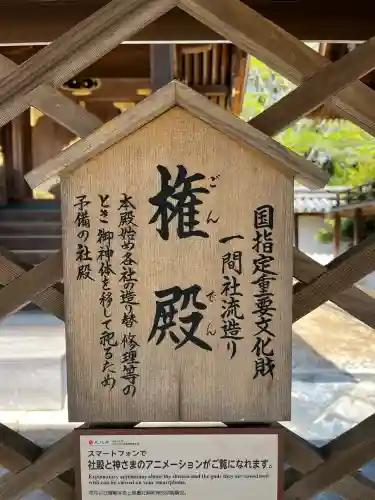 国指定重要文化財
一間社流造り
権殿
ごんでん
本殿始め各社の造り替、修理等の
とき御神体を移して祀るため
予備の社殿
スマートフォンで
社殿と神さまのアニメーションがご覧になれます。